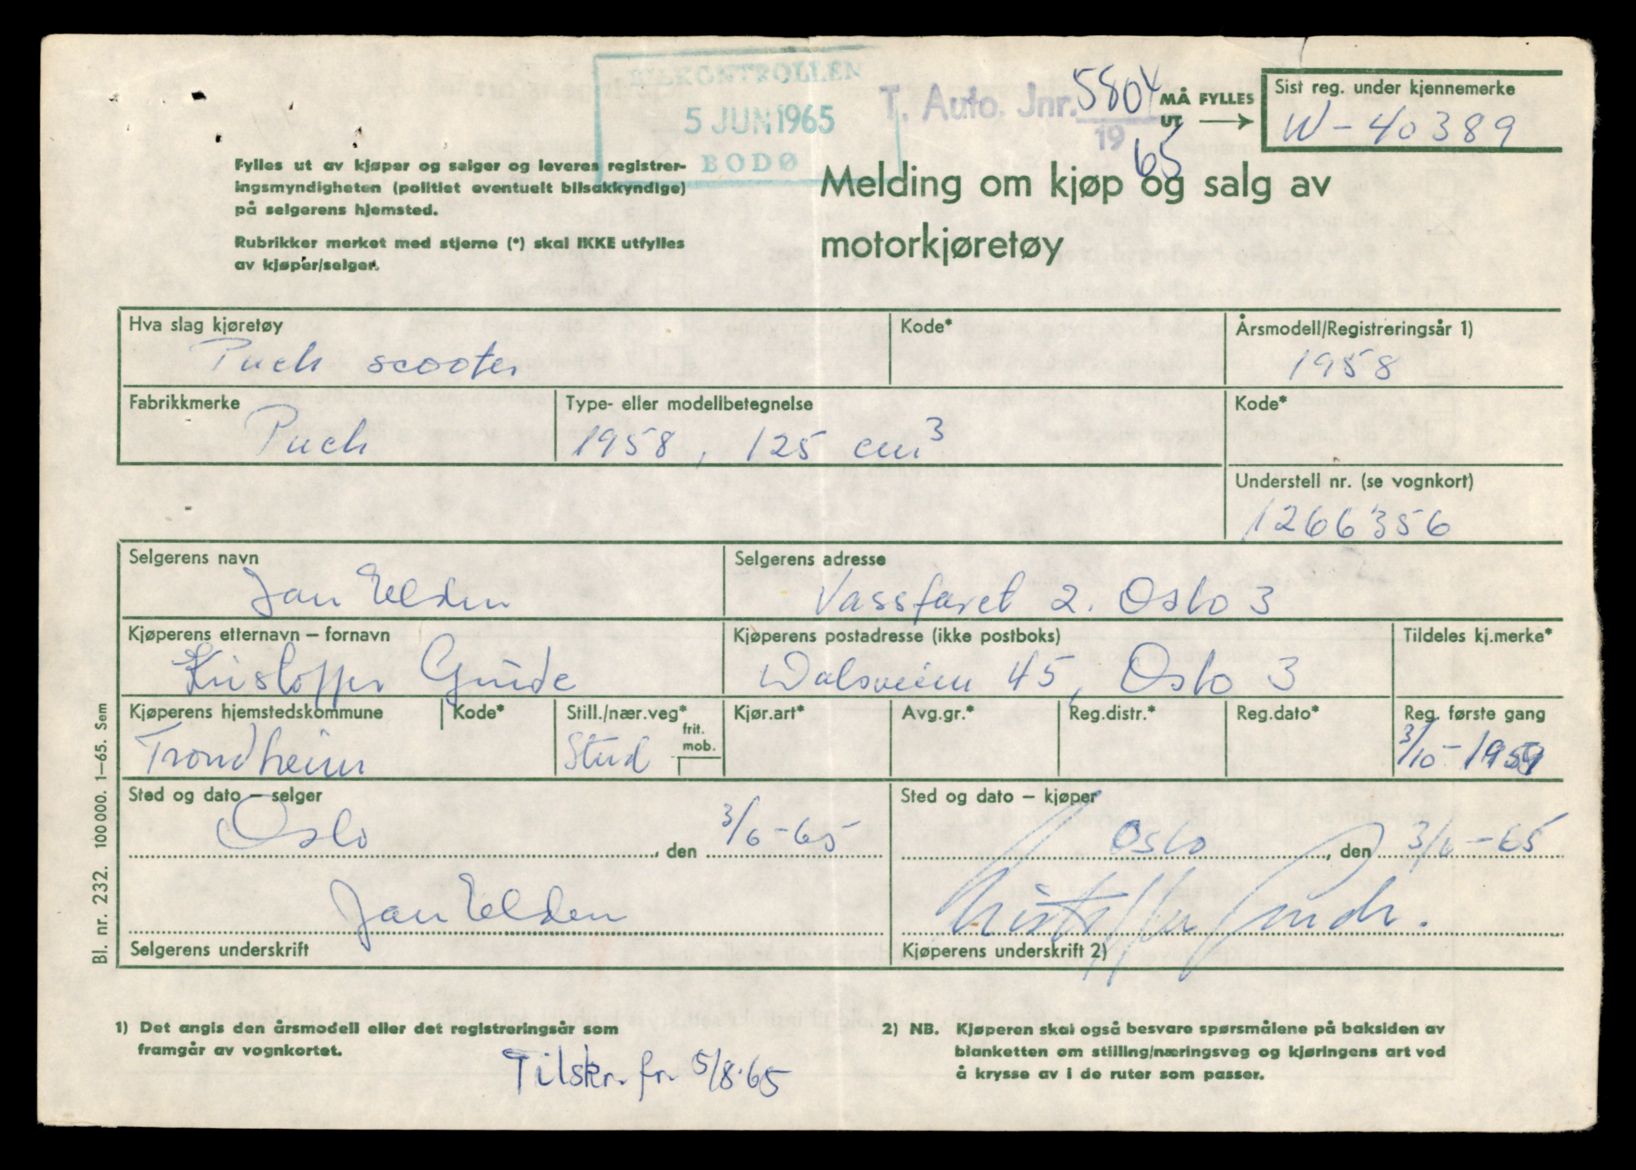 BILKONTROLLEN
5 JUN 1965
BODØ
T. Auto. Jnr. 5804
19 65
MÅ FYLLES UT
Sist reg. under kjennemerke
W-40389
Fylles ut av kjøper og selger og leveres registrer-
ingsmyndigheten (politiet eventuelt bilsakkyndige)
på selgerens hjemsted.
Rubrikker merket med stjerne (*) skal IKKE utfylles
av kjøper/selger.
Melding om kjøp og salg av
motorkjøretøy
Hva slag kjøretøy
Puch scooter
Kode*
Årsmodell/Registreringsår 1)
1958
Fabrikkmerke
Puch
Type- eller modellbetegnelse
1958, 125 cm3
Kode*
Understell nr. (se vognkort)
1266356
Selgerens navn
Jan Elden
Selgerens adresse
Vassfaret 2. Oslo 3
Kjøperens etternavn – fornavn
Kristoffer Gunde
Kjøperens postadresse (ikke postboks)
Dalsveien 45, Oslo 3
Tildeles kj.merke*
Kjøperens hjemstedskommune
Trondheim
Kode*
Still./nær.veg*
Stud
frit.
mob.
Kjør.art*
Avg.gr.*
Reg.distr.*
Reg.dato*
Reg. første gang
3/10-1959
Sted og dato – selger
Oslo, den 3/6-65
Jan Elden
Selgerens underskrift
Sted og dato – kjøper
Oslo, den 3/6-65
Kristoffer Gunde.
Kjøperens underskrift 2)
Bl. nr. 232. 100 000. 1–65. Sem
1) Det angis den årsmodell eller det registreringsår som
framgår av vognkortet.
Tilskr. fr. 5/8-65
2) NB. Kjøperen skal også besvare spørsmålene på baksiden av
blanketten om stilling/næringsveg og kjøringens art ved
å krysse av i de ruter som passer.